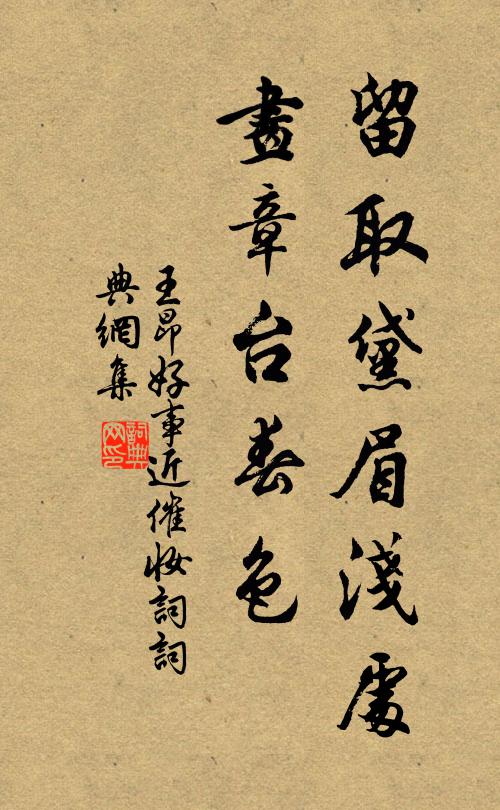 留取黛眉淺處
畫章台春色
王昂好事近催妝詞詞
典網集
詞典
网印